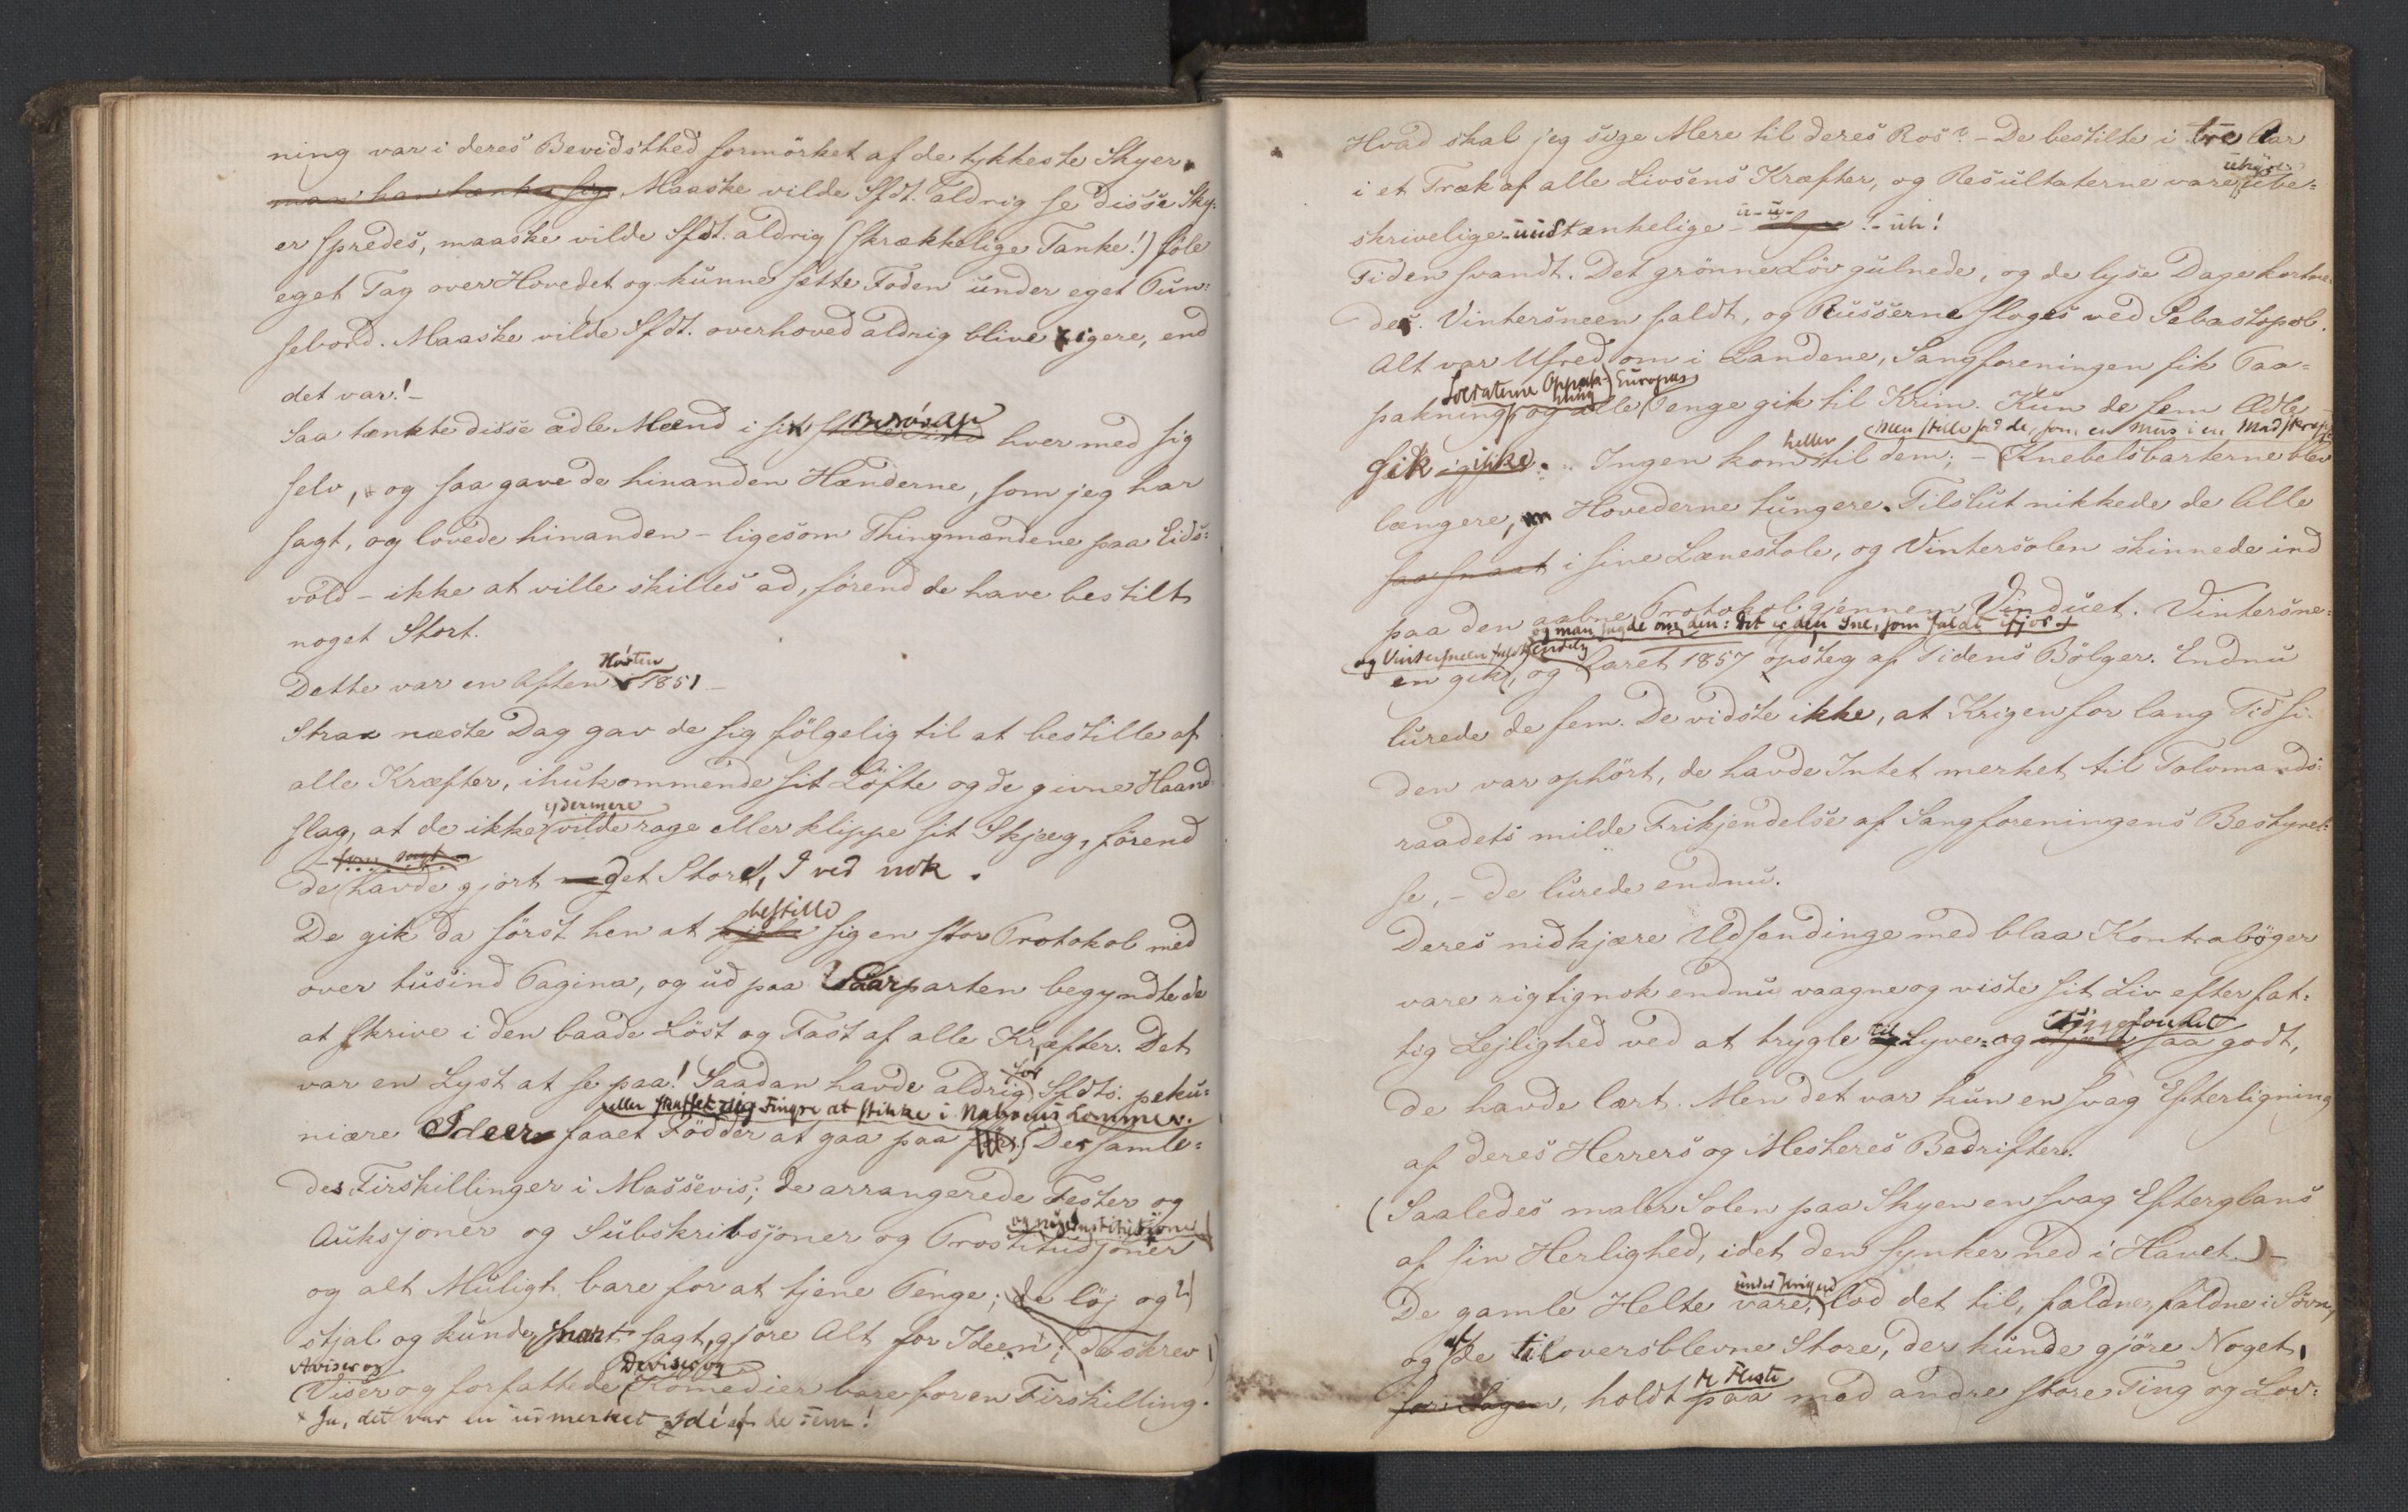 ning var i deres Bevidsthed formörket af de tykkeste Skyer.
man kan tænke sig. Maaske vilde Sfdt. aldrig se disse Sky-
er spredes, maaske vilde Sfdt. aldrig (skrækkelige Tanke!) föle
eget Tag over Hovedet og kunne sætte Foden under eget Pun-
sebord. Maaske vilde Sfdt. overhoved aldrig blive rigere, end
det var! –
Saa tænkte disse ædle Mænd i sit hver med sig
selv, og saa gave de hinanden Hænderne, som jeg har
sagt, og lovede hinanden – ligesom Thingmændene paa Eids-
vold – ikke at ville skilles ad, förend de have bestilt
noget Stort.
Hösten
Dette var en Aften 1851 –
Strax næste Dag gav de sig fölgelig til at bestille af
alle Kræfter, ihukommende sit Löfte og de givne Haand-
ydermere
slag, at de ikke vilde rage eller klippe sit Skjæg, förend
– som sagt –
de havde gjort noget Stort, I ved nok.
bestille
De gik da först hen at kjöbe sig en stor Protokol med
over tusind Pagina, og ud paa Vaarparten begyndte de
at skrive i den baade Löst og Fast af alle Kræfter. Det
för
var en Lyst at se paa! Saadan havde aldrig Sfdts: peku-
eller skaffet sig Fingre at stikke i Naboens Lommer.
niære Ideer faaet Födder at gaa paa för. Der samle-
des Firskillinger i Massevis; de arrangerede Fester og
og nye Institutsjoner
Auksjoner og Subskribsjoner og Prostitudsjoner
og alt Muligt bare for at tjene Penge; de löj og
stjal og kunde, snart sagt, gjöre Alt for Ideen; de skrev
Aviser og
Deviser og
Viser og forfattede Komedier bare for en Firskilling.
Ja, det var en udmerket Idé af de Fem!
Hvad skal jeg sige Mere til deres Ros? – De bestilte i tre Aar
uhyre
i et Træk af alle Livsens Kræfter, og Resultaterne vare, ube-
u-u-
skrivelige – uudtænkelige – uhyre! – uh!
Tiden svandt. Det grönne Löv gulnede, og de lyse Dage kortne-
des. Vintersneen faldt, og Russerne sloges ved Sebastopol.
Alt var Ufred om i Landene, Sangforeningen fik Paa-
Europas
pakning, og alle Penge gik til Krim. Kun de fem Ædle
heller men stille sad de, som en Mus i en Madskrep
gik ikke. Ingen kom til dem; – Knebelsbarterne blev
længere, Hovederne tungere. Tilslut nikkede de Alle
saa smaat i sine Lænestole, og Vintersolen skinnede ind
paa den aabne Protokol gjennem Vinduet. Vintersne-
og man sagde om den: det er den Sne, som faldt ifjor
og Vintersneen faldt endelig
en gik, og Aaret 1857 opsteg af Tidens Bölger. Endnu
lurede de fem. De vidste ikke, at Krigen for lang Tid si-
den var ophört, de havde Intet merket til Tolvmands-
raadets milde Frikjendelse af Sangforeningens Bestyrel-
se, – de lurede endnu.
Deres nidkjære Udsendinge med blaa Kontraböger
vare rigtignok endnu vaagne og viste sit Liv efter fat-
til
tig Lejlighed ved at trygle og Lyve- og saa godt,
de havde lært. Men det var kun en svag Efterligning
af deres Herrers og Mesteres Bedrifter.
(Saaledes maler Solen paa Skyen en svag Efterglans
af sin Herlighed, idet den synker ned i Havet.) –
under Krigen
De gamle Helte vare, lod det til, faldne, faldne i Sövn,
af
og de tiloversblevne Store, der kunde gjöre Noget,
de Fleste
for Sagen, holdt paa med andre store Ting og Lov-